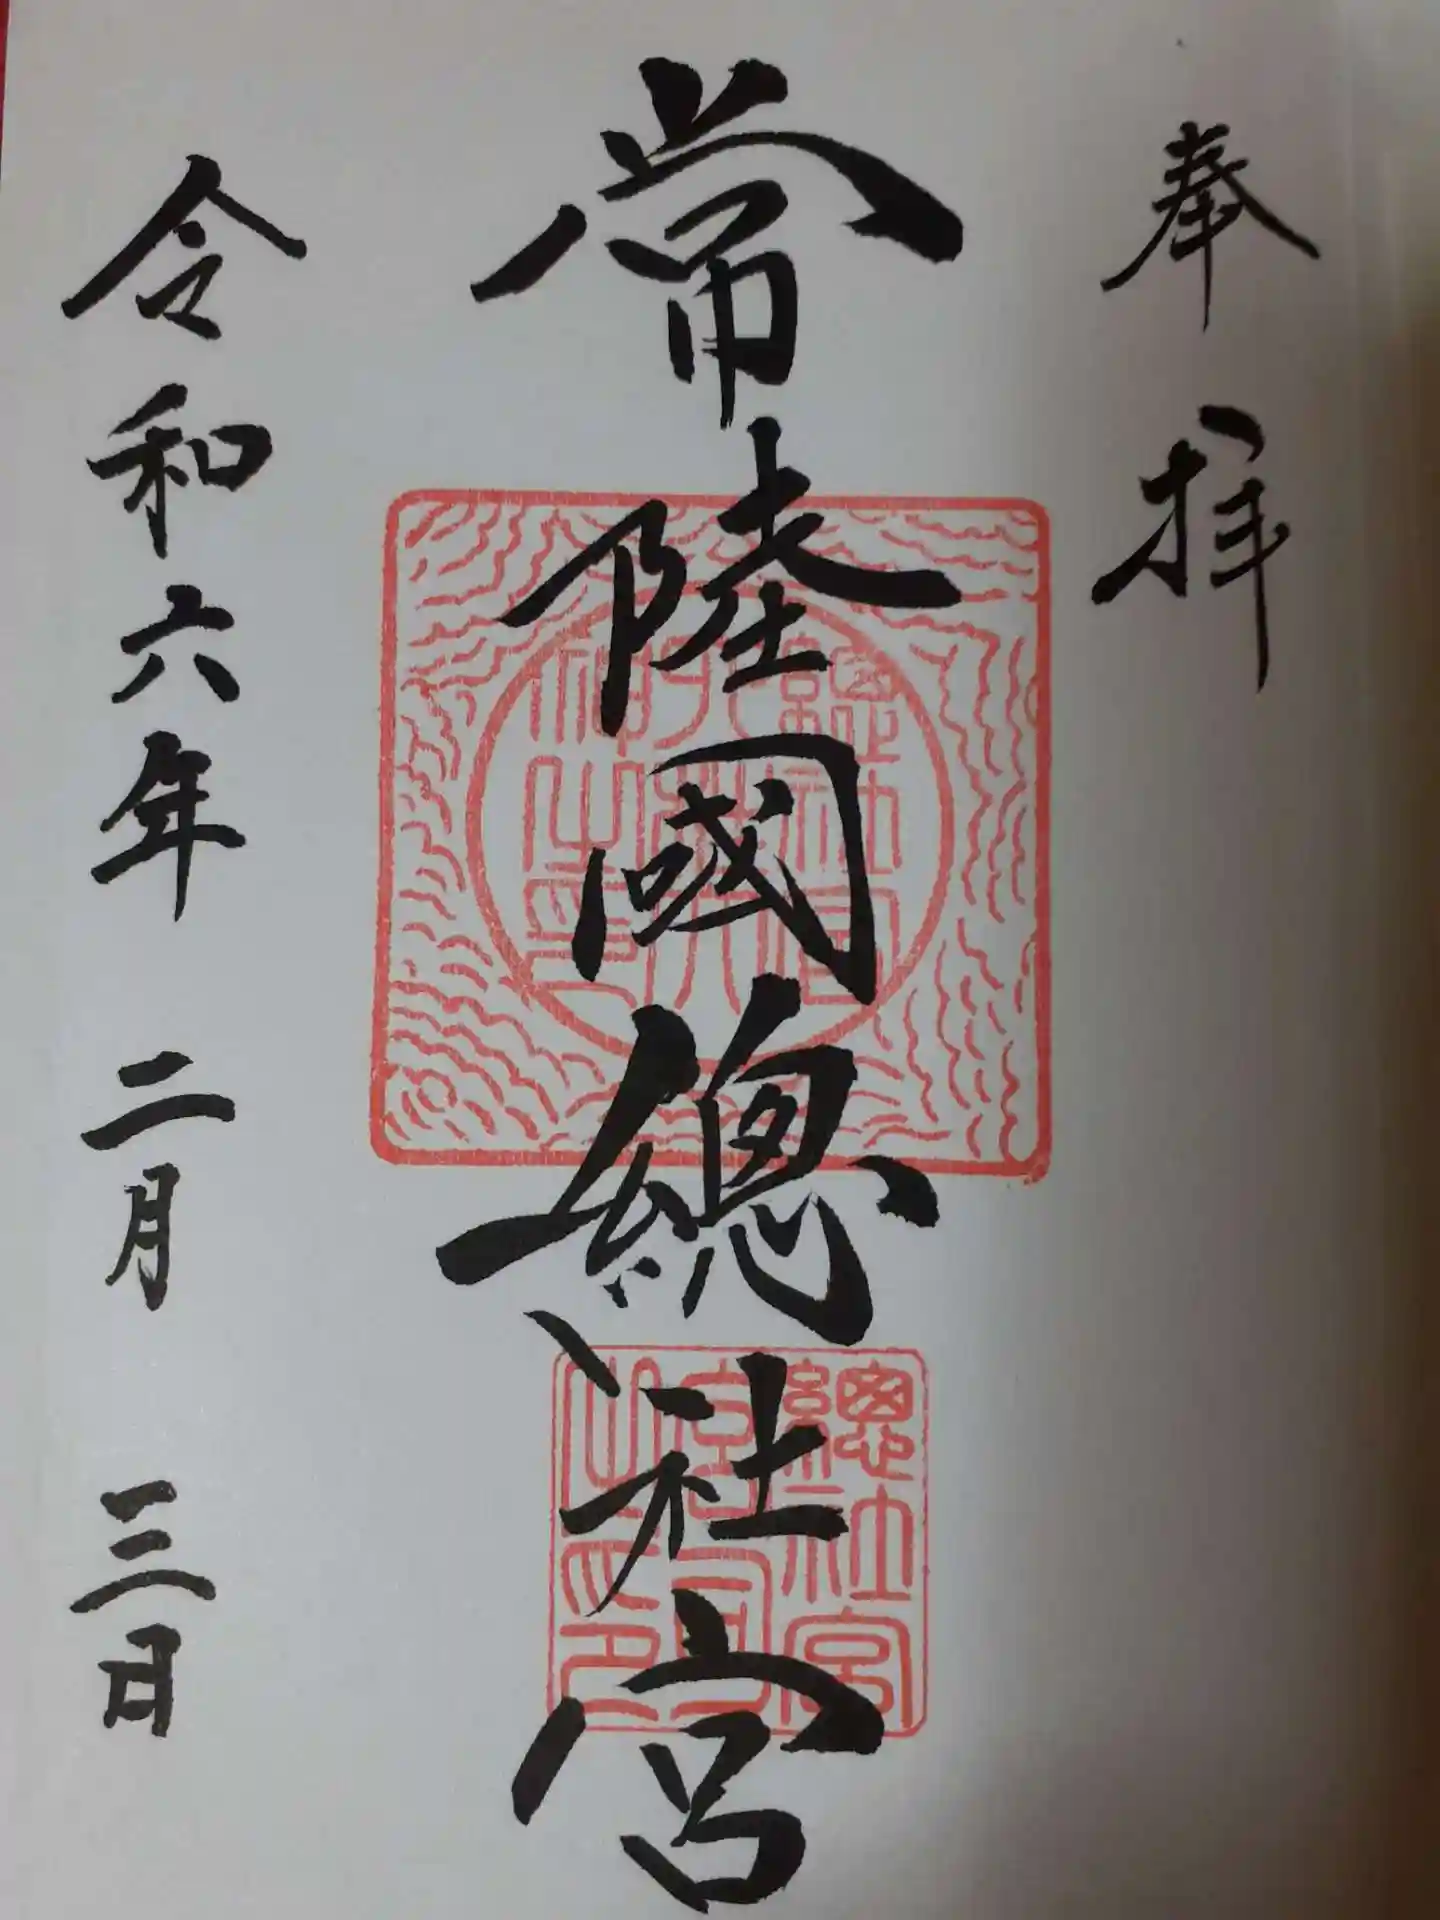 奉拝
常陸國總社宮
令和六年 二月 三日
總社宮